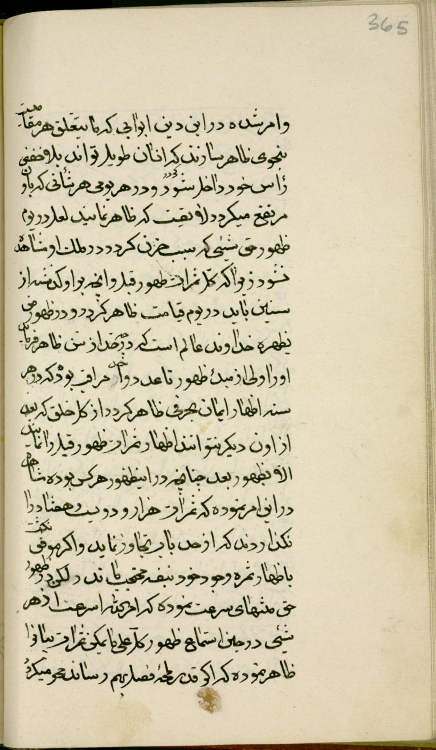 365
وامر شده در این دین ابوابی که ما یتعلق هر مقامیست
بنحوی ظاهر سازند که انسان طویل تواند بلا خفض
رأس خود داخل شود و در هر یومی هر شأنی که باو
مرتفع میگردد لایقست که ظاهر نمایند لعل در یوم
ظهور حق شیئی که سبب حزن گردد در ملک او مشاهده
نشود زیرا که کل ثمرات ظهور قبل و آنچه بر او گذشته از
سنین باید در یوم قیامت ظاهر گردد و در ظهور من
یظهره خداوند عالم است که در چه حد از سن ظاهر فرماید
او را ولی از مبدء ظهور تا عدد واحد مراقب بوده که در هر
سنه اظهار ایمان بحرفی ظاهر گردد از کل خلق که بعد
از اون دیگر نتوانند اظهار ثمرات ظهور قبل را نمایند
الا بظهور بعد چنانچه در این ظهور هر کس بوده مشاهده
در این امر نموده که ثمرات هزار و دویست و هفتاد را
نگذاردند که از حد باب تجاوز نماید واگر
باظهار ثمره وجود خود بنفسه محتجب ماند ولکن در ظهور
حق منتهای سرعت نموده که امر الله اسرعست از هر
شیئی در حین استماع ظهور کل اعلی ما یمکن ثمرات بیان را
ظاهر نموده که اگر قدر لمحه فصل بهم رساند محو میگردد